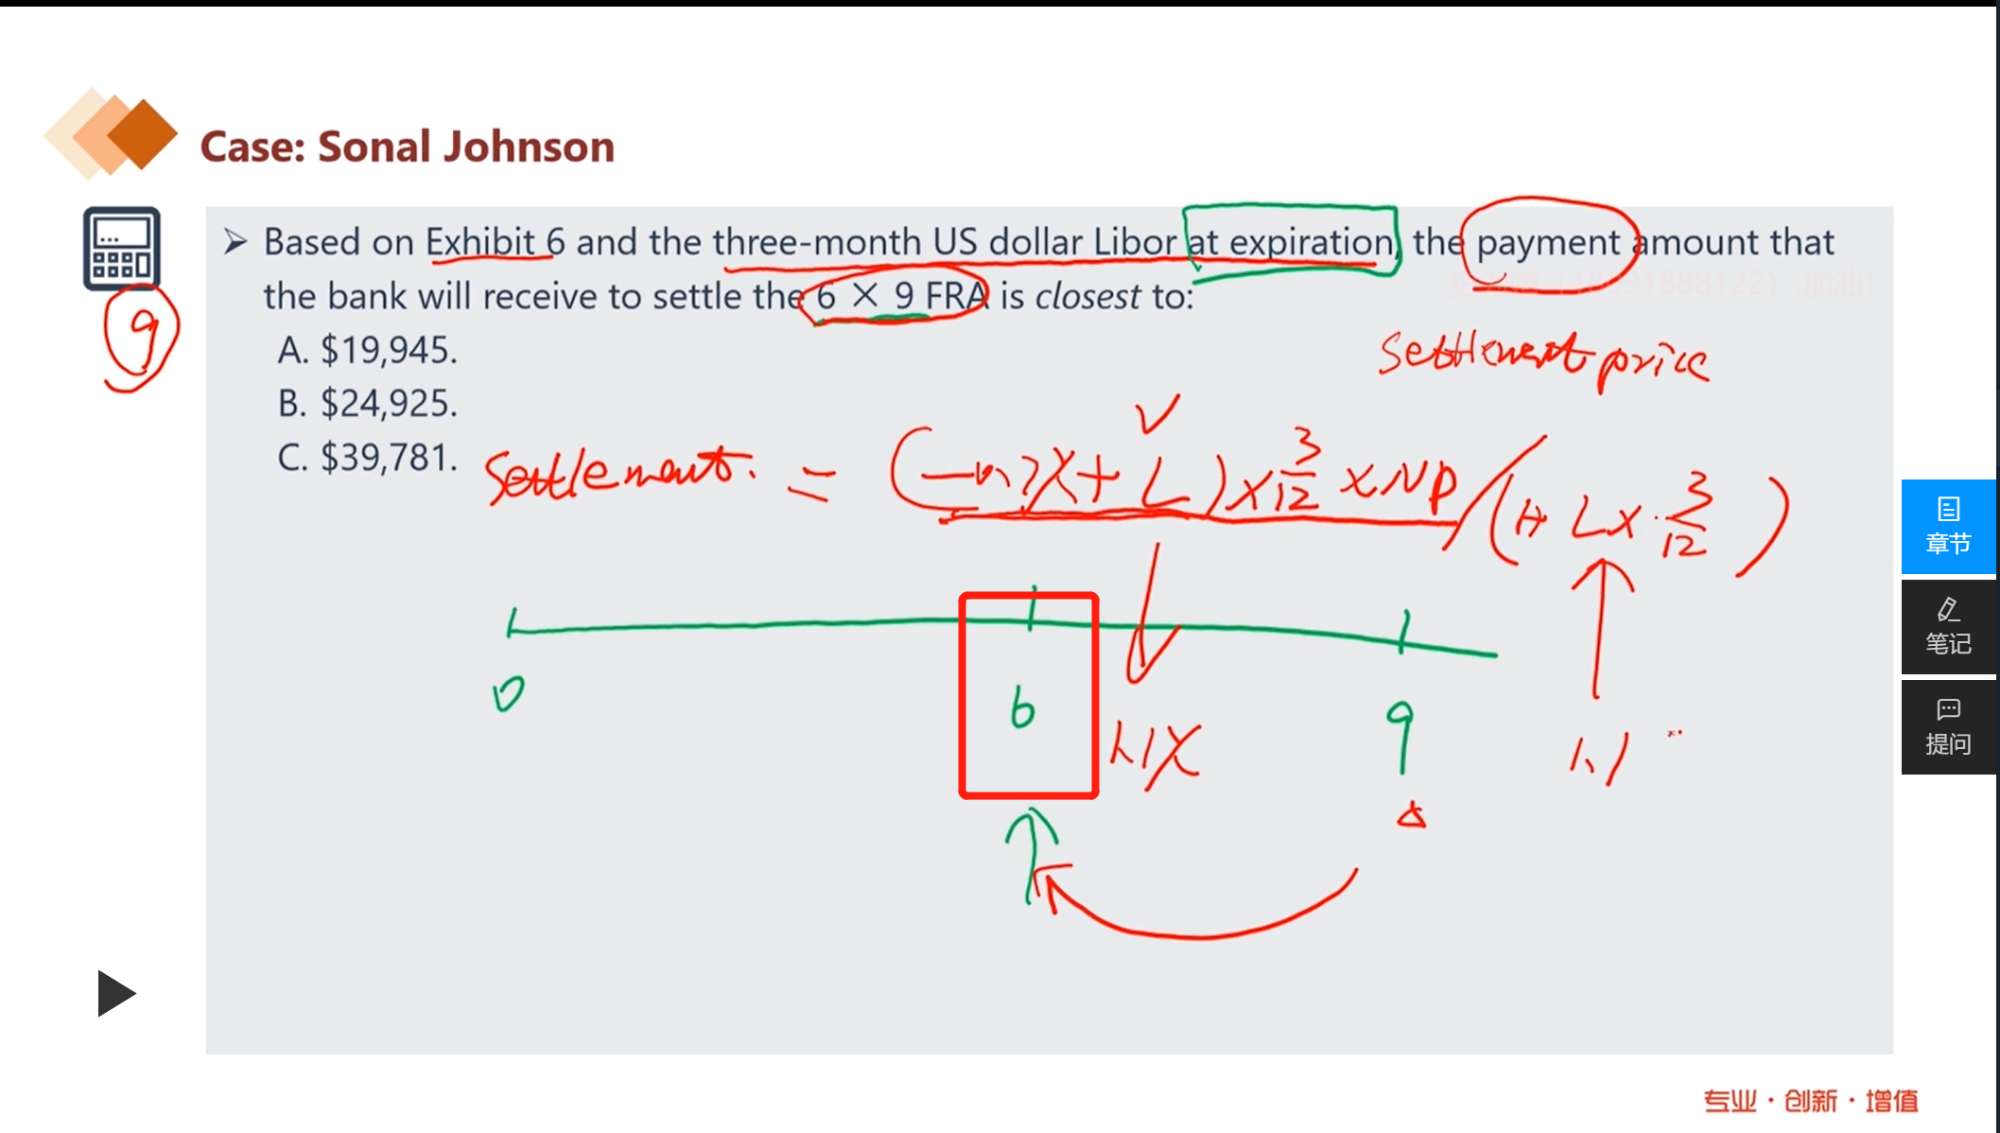 Case: Sonal Johnson
➤ Based on Exhibit 6 and the three-month US dollar Libor at expiration, the payment amount that
the bank will receive to settle the 6 × 9 FRA is closest to:
9
A. $19,945.
settlement price
B. $24,925.
C. $39,781.
settlement. = ( + L) × 3/12 × NP / (1+ L × 3/12)
0
6
9
1.1
章节
笔记
提问
专业・创新・增值